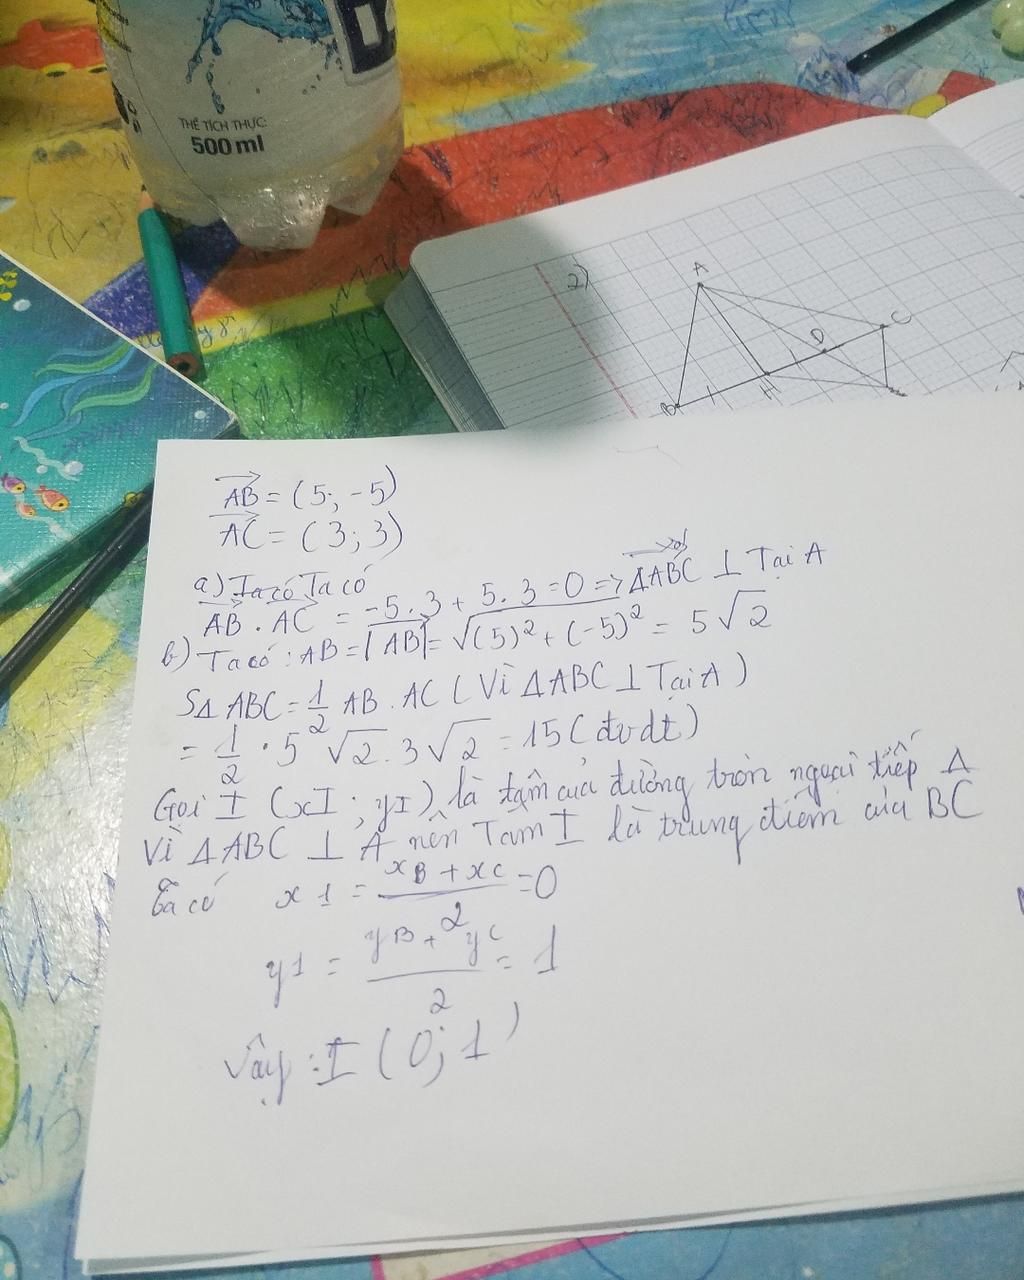 THỂ TÍCH THỰC:
500 ml
2)
A
B
H
D
C
AB = (5; -5)
AC = (3; 3)
a) Ta có Ta có
AB . AC = -5.3 + 5.3 = 0 => ΔABC ⊥ Tại A
b) Ta có : AB = |AB| = √(5)² + (-5)² = 5√2
SΔABC = 1/2 AB . AC (Vì ΔABC ⊥ Tại A)
= 1/2 . 5√2 . 3√2 = 15 (đvdt)
Gọi I (xI ; yI) là tâm của đường tròn ngoại tiếp Δ
Vì ΔABC ⊥ A nên Tâm I là trung điểm của BC
Ta có x1 = xB + xC / 2 = 0
y1 = yB + yC / 2 = 1
Vậy : I (0; 1)